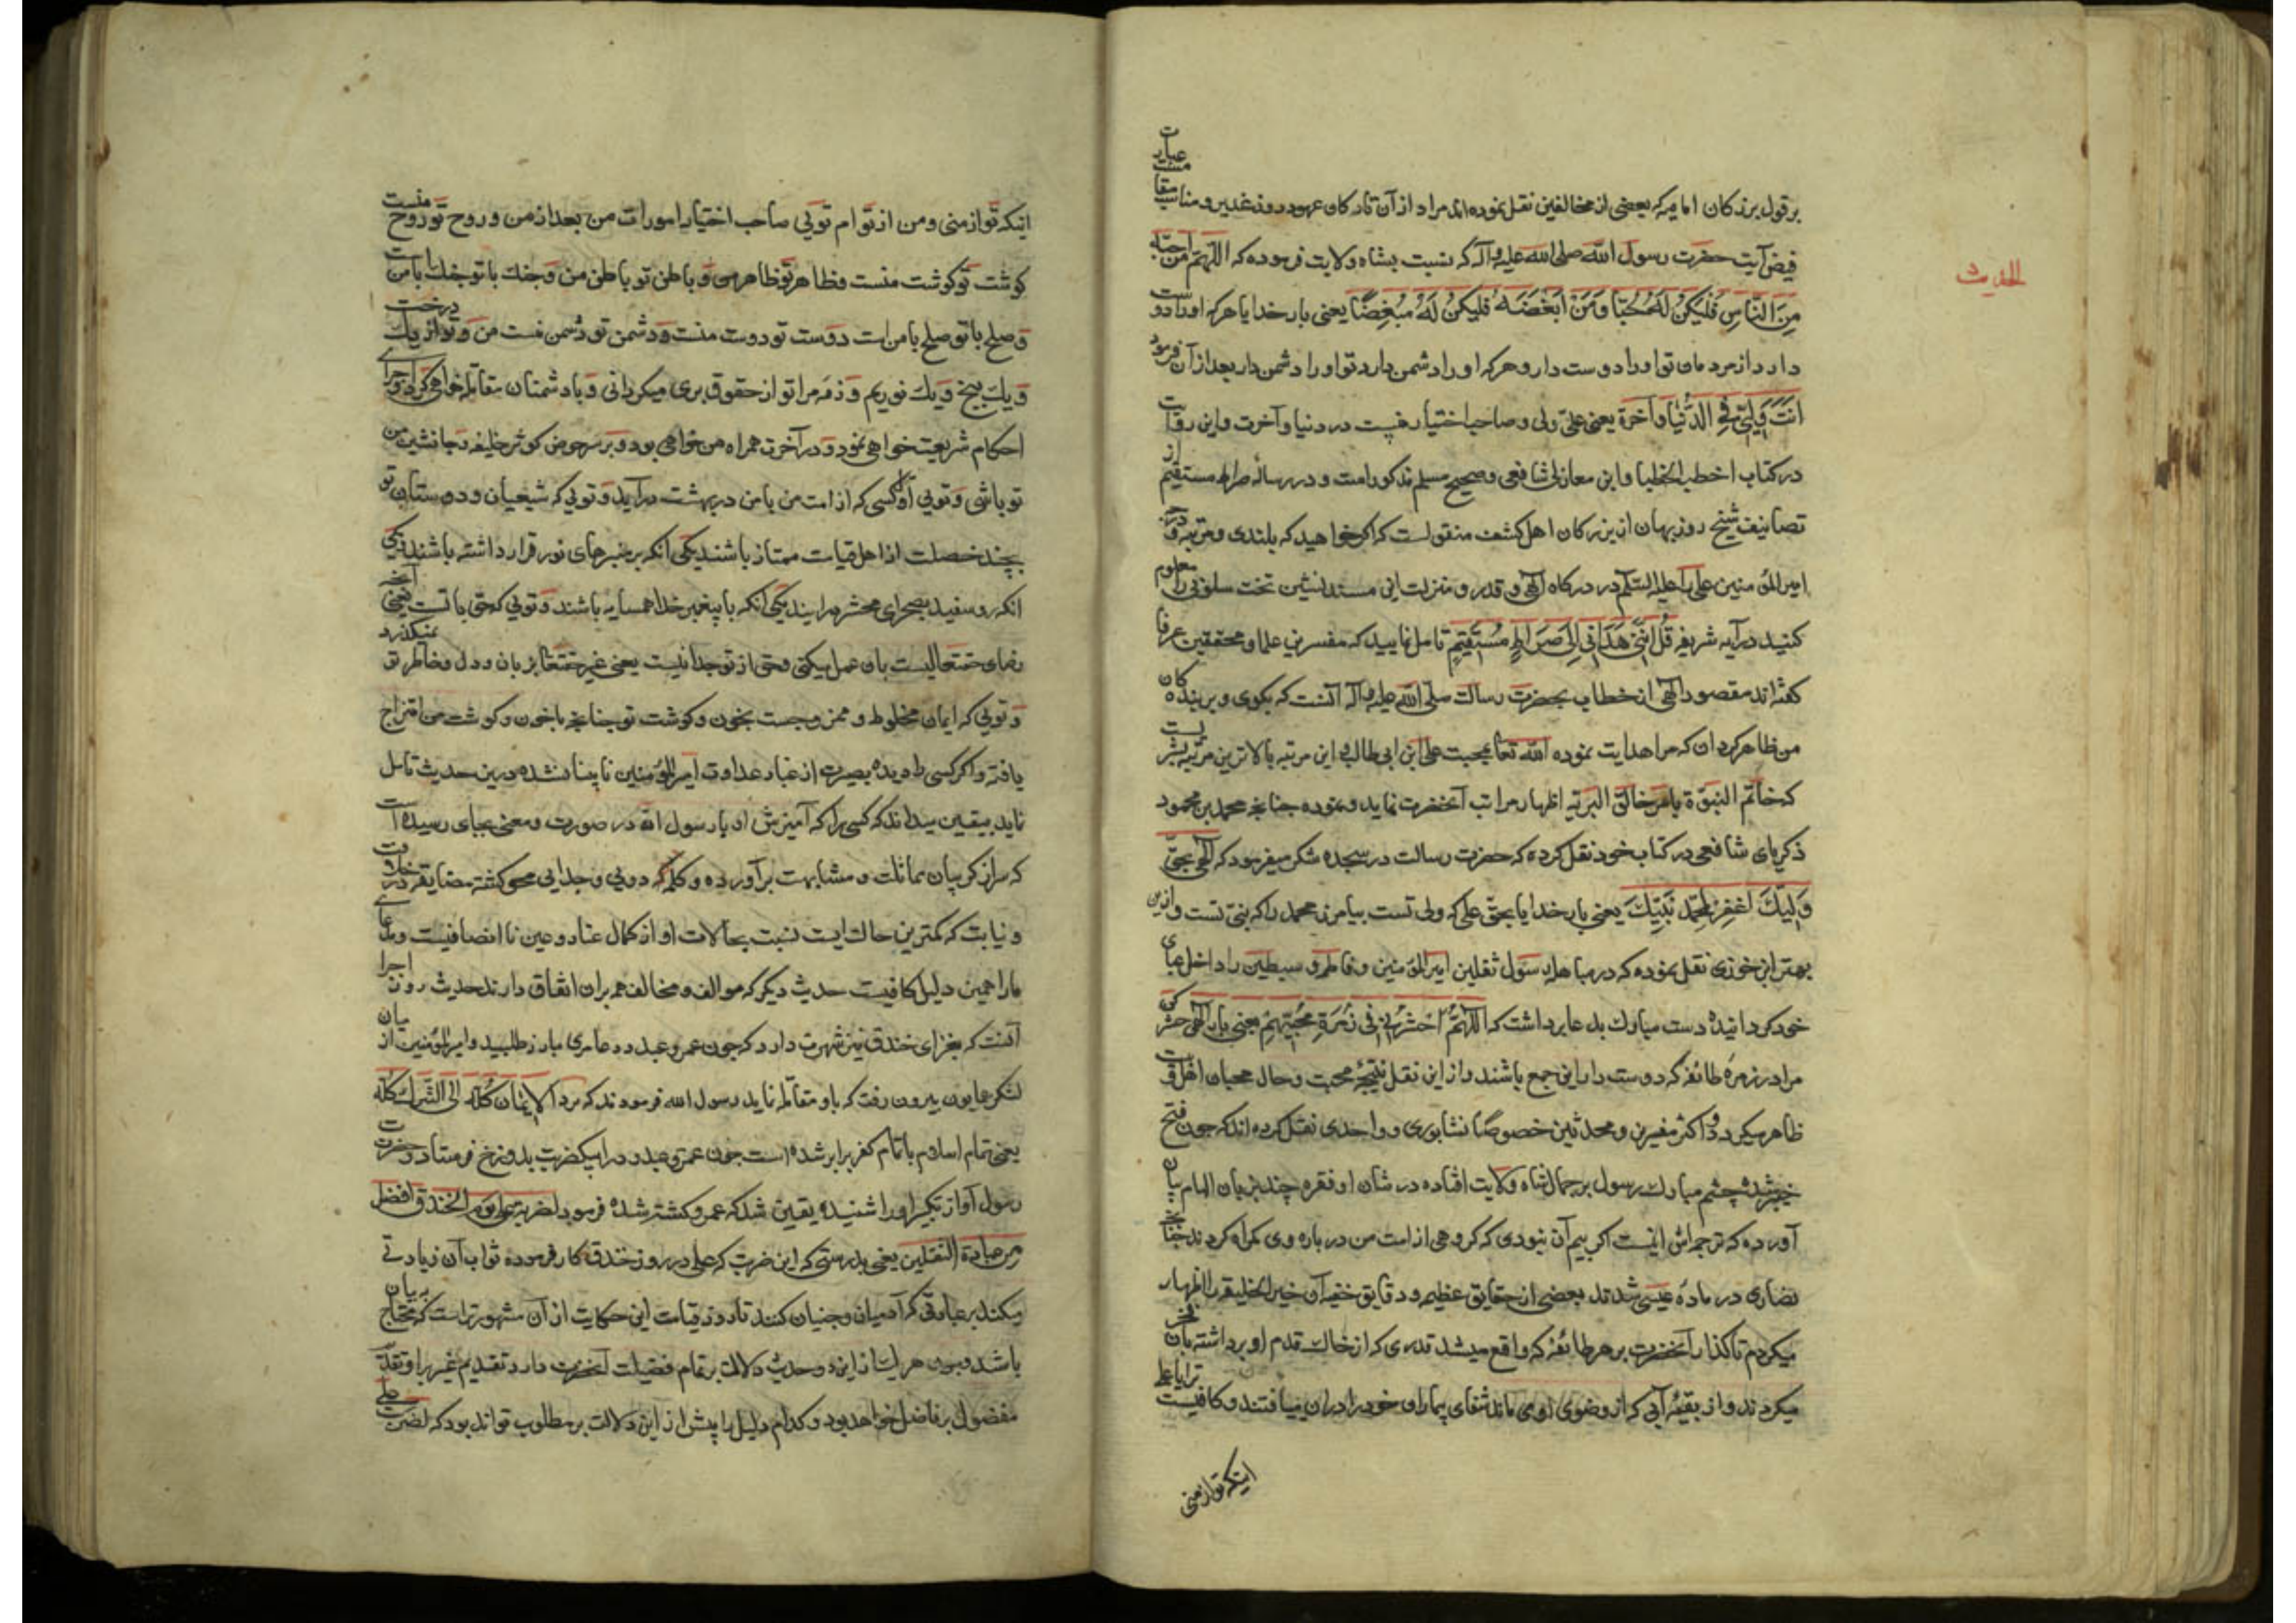 بر قول بزرکان امامیه که بعضی از مخالفین نقل نموده اند مراد از آن تارکان عهود روز غدیر و مناسب مقا
فیض آیت حضرت رسول الله صلی الله علیه وآله که نسبت بشاه ولایت فرموده که اللهم من احبه
الحدیث
من الناس فلیکن له محبا ومن ابغضه فلیکن له مبغضا یعنی بار خدایا هر که او را دوست
دارد از مردمان تو او را دوست دار و هر که او را دشمن دارد تو او را دشمن دار بعد از آن فرمود
انت ولیی فی الدنیا وآخرة یعنی علی ولی و صاحب اختیار منست در دنیا و آخرت و این روایت
در کتاب اخطب الخطبا و ابن مغازلی شافعی و صحیح مسلم مذکور است و در رساله صراط مستقیم از
تصانیف شیخ روزبهان از بزرکان اهل کشف منقولست که اکر خواهید که بلندی و مرتبه
امیر المؤمنین علی را علیه السلام در درکاه الهی و قدر و منزلت این مسند نشین تخت سلونی را معلوم
کنید در آیه شریفه قل اننی هدانی الی صراط مستقیم تامل نمایید که مفسرین علما و محققین عرفا
کفته اند مقصود الهی از خطاب بحضرت رسالت صلی الله علیه وآله آنست که بکوی و بر بنده کان
من ظاهر کردان که مرا هدایت نموده الله تعا بمحبت علی ابن ابی طالب و این مرتبه بالاترین مرتبه ایست
که خاتم النبوة بامر خالق البریه اظهار مراتب آنحضرت نماید و نموده چنانچه محمد بن محمود
ذکریای شافعی در کتاب خود نقل کرده که حضرت رسالت در سجده شکر میفرمود که الهی بحق
ولیک اغفر لمحمد نبیک یعنی بار خدایا بحق علی که ولی تست بیامرز محمد را که نبی تست و ازین
بهتر ابن خوزی نقل نموده که در مباهله رسول ثقلین امیر المؤمنین و فاطمه و سبطین را داخل عبای
خود کردانیده دست مبارک بدعا برداشت که اللهم احشرنی فی زمرة محبیهم یعنی بار الهی حشر کن
مرا در زمره طائفه که دوستدار این جمع باشند و از این نقل نتیجه محبت و حال محبان اهل بیت
ظاهر میکردد و اکثر مفسرین و محدثین خصوصا نشابوری و واحدی نقل کرده اند که چون فتح
خیبر شده چشم مبارک رسول بر جمال شاه ولایت افتاده در شان او فقره چند بزبان الهام بیان
آورده که ترجمه اش اینست اکر بیم آن نبودی که کروهی از امت من در باره وی کمراه کردند چنانچه
نصاری در ماده عیسی شدند بعضی از حقایق عظیم و دقایق خفیه آن خیر الخلیقه را اظهار
میکردم تا کذار آنحضرت بر هر طائفه که واقع میشد قدری که از خاک قدم او برداشته بآن فخر
میکردند و از بقیه آبی که از وضوی او می ماند شفای بیماران خود را در آن مییافتند و کافیست ترا یا علی
اینکه تو از منی
اینکه تو از منی و من از توام تویی صاحب اختیار امورات من بعد از من و روح تو روح منست
کوشت تو کوشت منست و ظاهر تو ظاهر من و باطن تو باطن من و جنک با تو جنک با من است
و صلح با تو صلح با من است دوست تو دوست منست و دشمن تو دشمن منست من و تو از یک درخت
و یک بیخ و یک نوریم و ذمه مرا تو از حقوق بری میکردانی و با دشمنان مقاتله خواهی کرد و اجرای
احکام شریعت خواهی نمود و در آخرت همراه من خواهی بود و بر سر حوض کوثر خلیفه و جانشین من
تو باشی و تویی اول کسی که از امت من با من در بهشت درآید و تویی که شیعیان و دوستان تو
بچند خصلت از اهل قیامت ممتاز باشند یکی آنکه بر منبرهای نور قرار داشته باشند دیکری
آنکه رو سفید بصحرای محشر درآیند یکی آنکه با پیغمبر خدا همسایه باشند و تویی که حق با تست یعنی آنچه
رضای حقتعالیست بآن عمل میکنی و حق از تو جدا نیست یعنی غیر حقتعا بزبان و دل و خاطر تو نمیکذرد
و تویی که ایمان مخلوط و ممزوجست بخون و کوشت تو چنانچه با خون و کوشت من امتزاج
یافته و اکر کسی را دیده بصیرت از غبار عداوت امیر المؤمنین نابینا نشده درین حدیث تامل
نماید بیقین میداند که کسی را که آمیزش او با رسول الله در صورت و معنی بجای رسیده است
که سر از کریبان مماثلت و مشابهت برآورده و کلمه دویی و جدایی محو کشته مضایقه در خلافت
و نیابت که کمترین حالت ایست نسبت بحالات او از کمال عناد و عین نا انصافیست و مدعای
ما را همین دلیل کافیست حدیث دیکر که موالف و مخالف همه بر آن اتفاق دارند حدیث روز
آنست که بغزای خندق نیز شهرت دارد که چون عمرو عبدود عامری مبارز طلبید و امیر المؤمنین از میان
لشکر همایون بیرون رفت که با او مقاتله نماید رسول الله فرمودند که برز الایمان کله الی الشرک کله
یعنی تمام اسلام با تمام کفر برابر شده است چون عمرو عبدود را بیکضرب بدوزخ فرستاد و حضرت
رسول آواز تکبیر او را شنیده یقین شد که عمر و کشته شده فرمود لضربة علی یوم الخندق افضل
من عبادة الثقلین یعنی بدرستی که این ضربت که علی در روز خندق کار فرموده ثواب آن زیادتی
میکند بر عبادتی که آدمیان و جنیان کنند تا روز قیامت این حکایت از آن مشهورتر است که محتاج به بیان
باشد و چون هر یک از این دو حدیث دلالت بر تمام فضیلت آنحضرت دارد تقدیم غیر بر او تقدیم
مفضول بر فاضل خواهد بود و کدام دلیل را بیش از این دلالت بر مطلوب تواند بود که لضربت علی